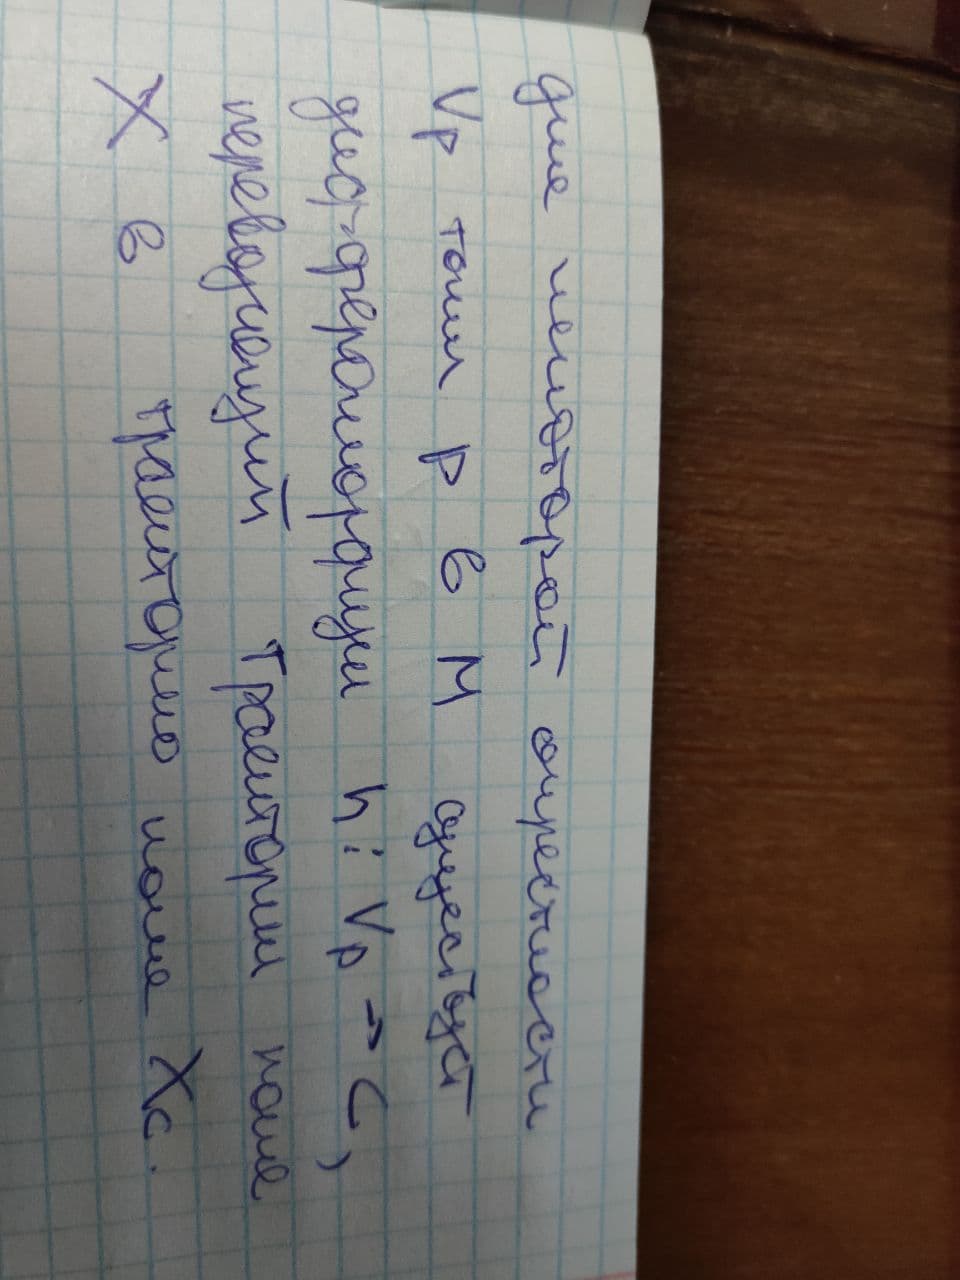 для некоторой окрестности
Vp точки p в M существует
диффеоморфизм h: Vp → C,
переводящий траектории поля
X в траекторию поля Xc.